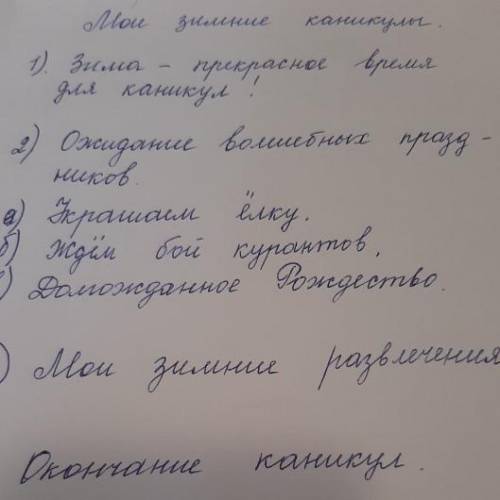 Мои зимние каникулы.
1). Зима - прекрасное время
для каникул!
2) Ожидание волшебных празд-
ников.
а) Украшаем ёлку.
б) Ждём бой курантов.
) Доможданное Рождество.
) Мои зимние развлечения
Окончание каникул.